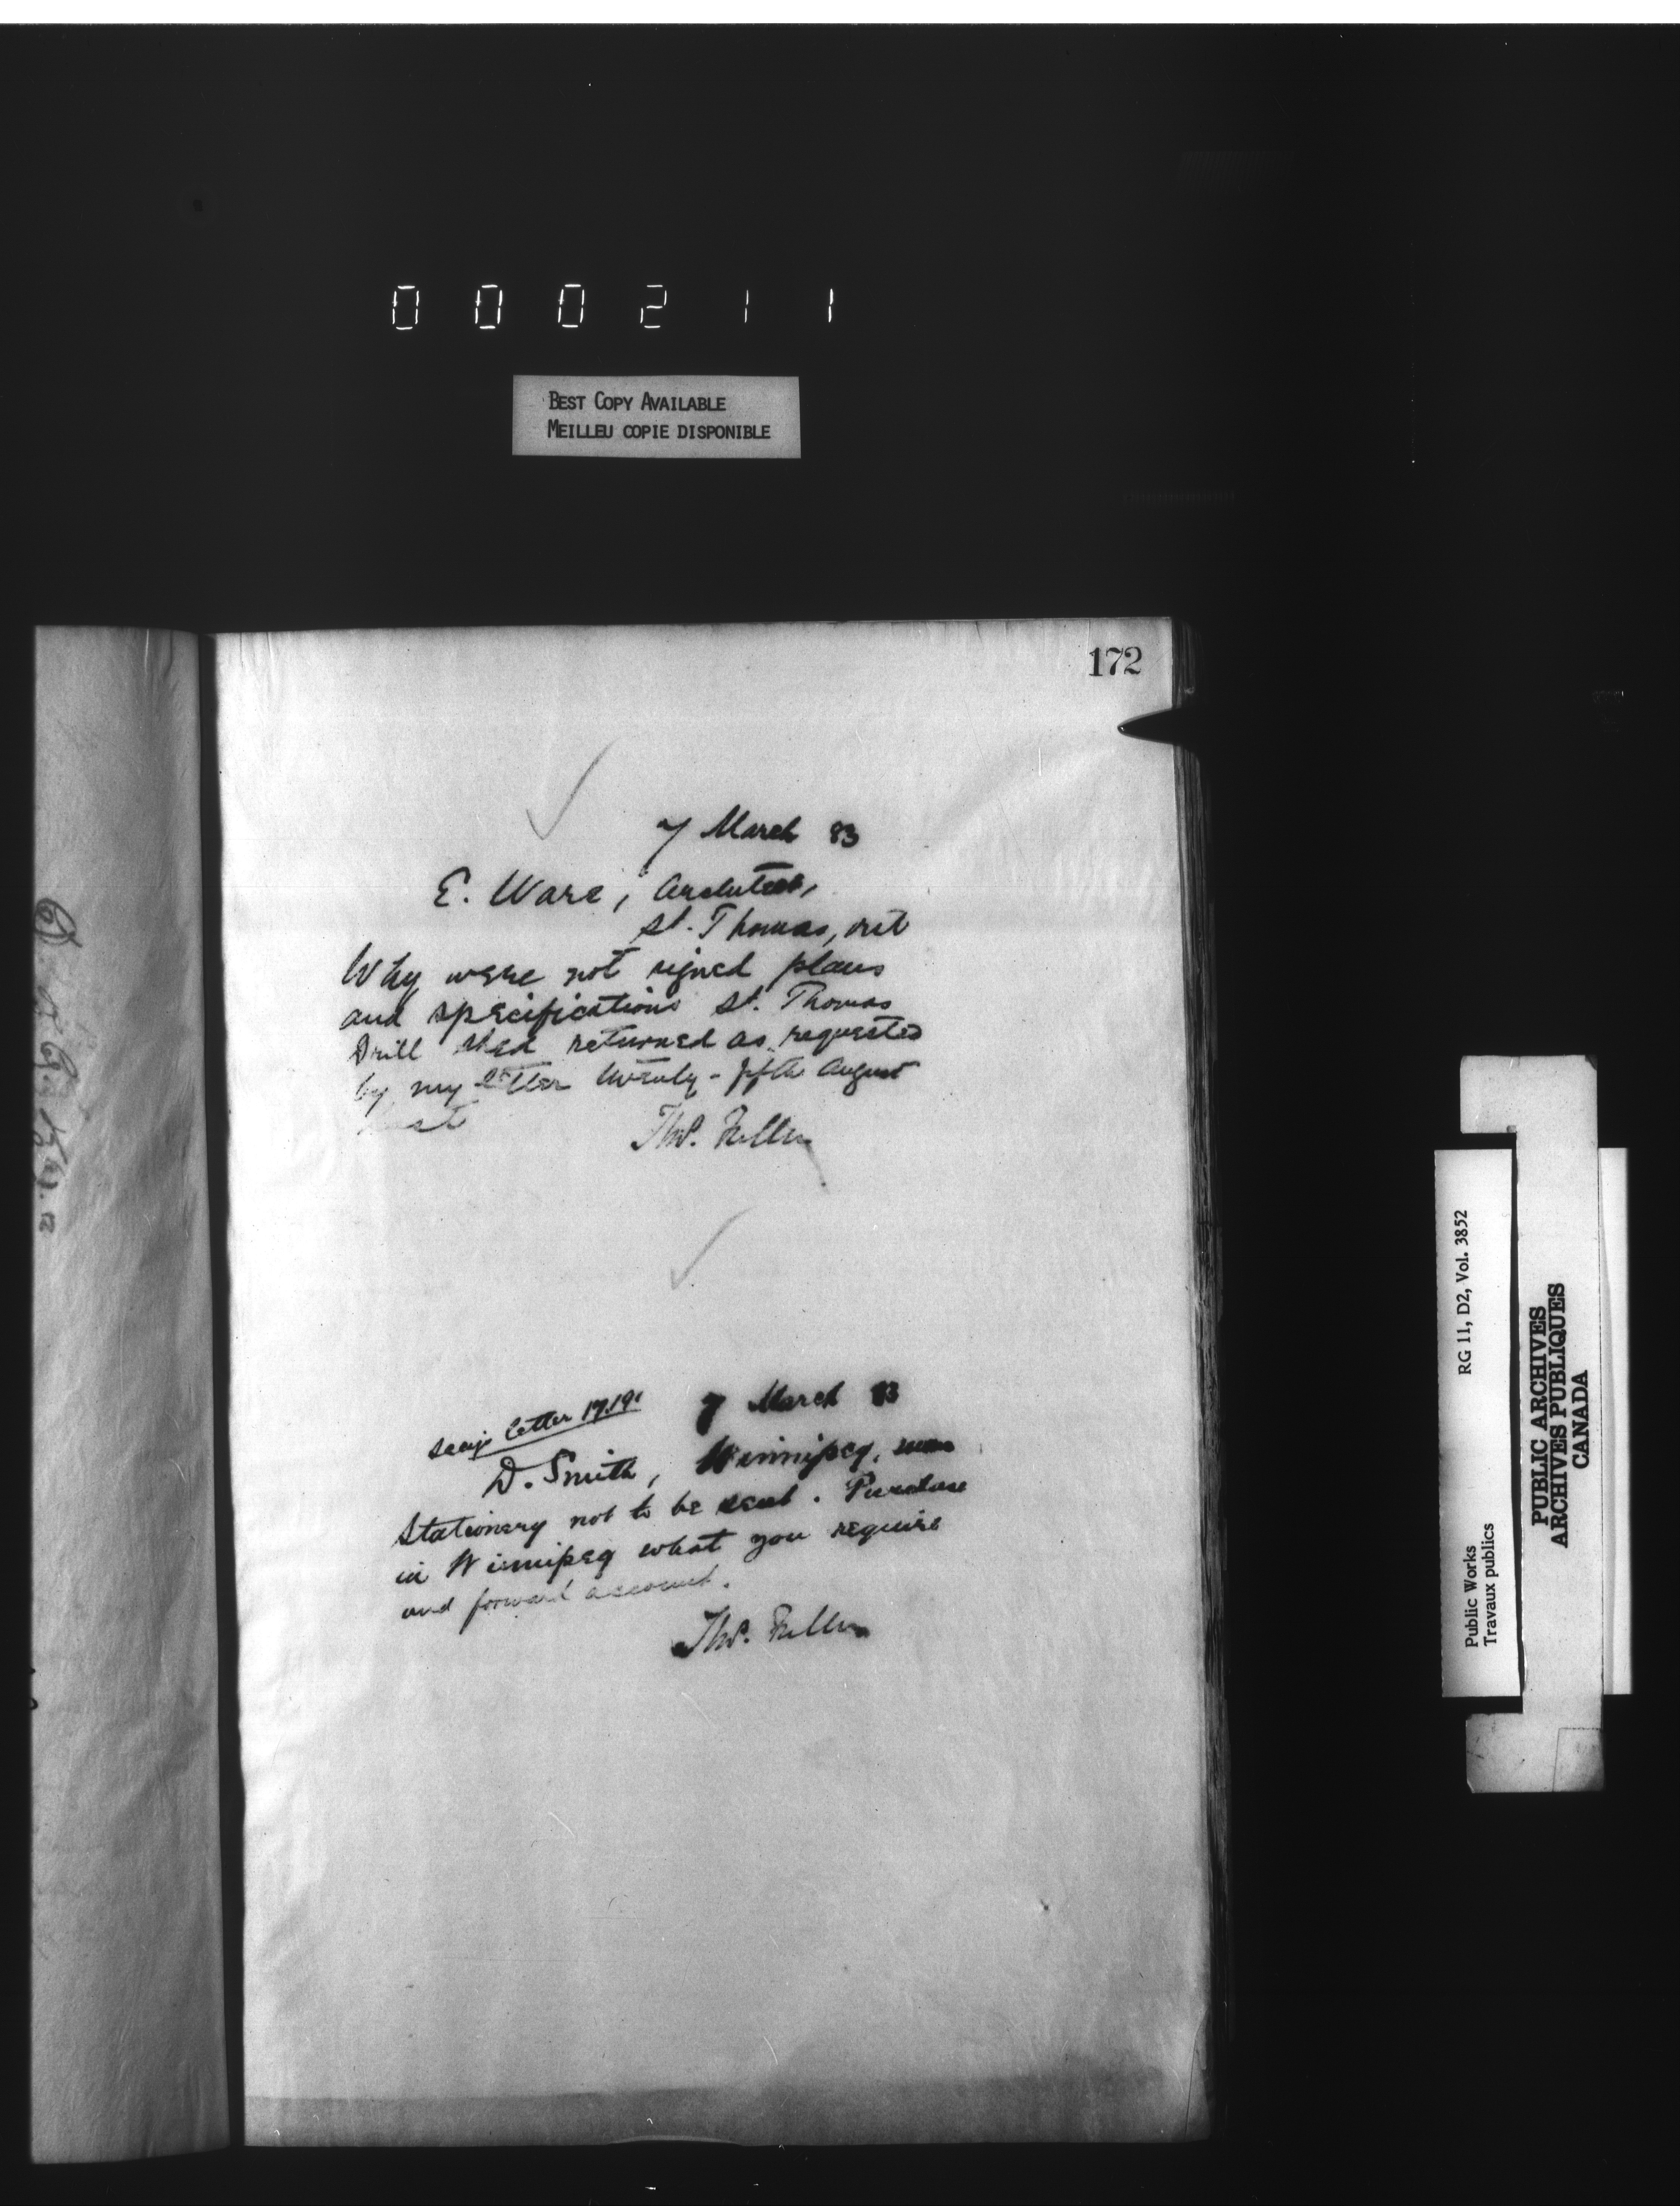 000211
BEST COPY AVAILABLE
MEILLEU COPIE DISPONIBLE
172
7 March 83
E. Ware, Architect,
St. Thomas, Ont
Why were not signed plans
and specifications St. Thomas
Drill shed returned as requested
by my letter twenty-fifth August
last
Thos. Fuller
7 March 83
letter 17.191
D. Smith, Winnipeg, Man
Stationery not to be sent. Purchase
in Winnipeg what you require
and forward account.
Thos. Fuller
RG 11, D2, Vol. 3852
Public Works
Travaux publics
PUBLIC ARCHIVES
ARCHIVES PUBLIQUES
CANADA